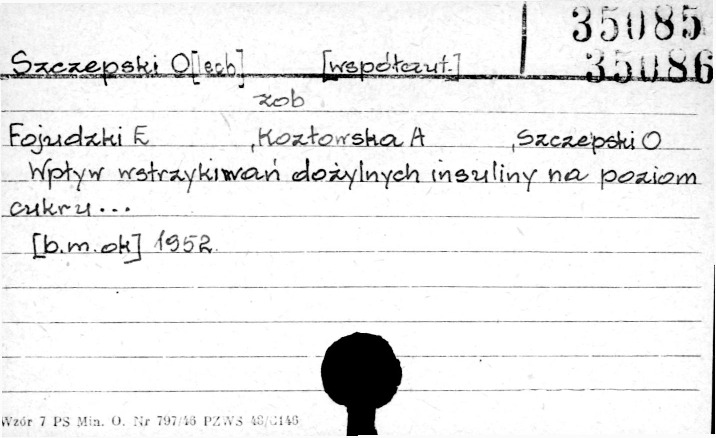 35085
Szczepski O[lech] [współaut.] 35086
zob
Fojudzki E , Kozłowska A , Szczepski O
Wpływ wstrzykiwań dożylnych insuliny na poziom
cukru...
[b.m.ok] 1952
Wzór 7 PS Min. O. Nr 797/46 PZWS 48/C146